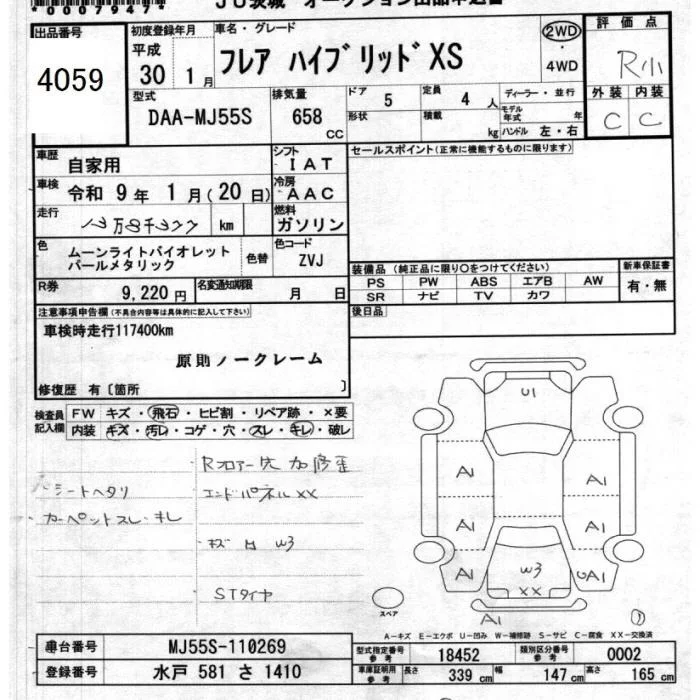 *0007947*
JU茨城 オークション出品申込書
出品番号
4059
初度登録年月
平成
30年 1月
車名・グレード
フレア ハイブリッド XS
2WD
・
4WD
評価点
R小
外装 内装
C C
型式
DAA-MJ55S
排気量
658
CC
ドア
5
定員
4 人
形状
積載
kg
ディーラー・並行
モデル年式 年
ハンドル 左・右
車歴
自家用
シフト
IAT
車検
令和 9年 1月(20日)
冷房
AAC
走行
km
燃料
ガソリン
色
ムーンライトバイオレット
パールメタリック
色替
色コード
ZVJ
R券
9,220円
名変通知期限
月 日
セールスポイント(正常に機能するものに限ります)
装備品(純正品に限り○をつけてください)
PS PW ABS エアB AW
SR ナビ TV カワ
新車保証書
有・無
後日品
注意事項申告欄(不具合内容等は具体的に記入して下さい)
車検時走行117400km
原則ノークレーム
修復歴 有〔箇所 〕
検査員
記入欄
FW キズ・飛石・ヒビ割・リペア跡・×要
内装 キズ・汚レ・コゲ・穴・スレ・キレ・破レ
Rフロアー穴 加修歪
シートヘタリ
エンドパネルXX
カーペットスレ・キレ
キズ 凹 W3
STタイヤ
U1
A1 A1
A1 A1
A1 W3 UA1
XX
A1
スペア
A-キズ E-エクボ U-凹み W-補修跡 S-サビ C-腐食 XX-交換済
車台番号
MJ55S-110269
登録番号
水戸 581 さ 1410
型式指定番号
参考
18452
類別区分番号
参考
0002
車庫証明用
参考
長さ 339 cm 幅 147 cm 高さ 165 cm